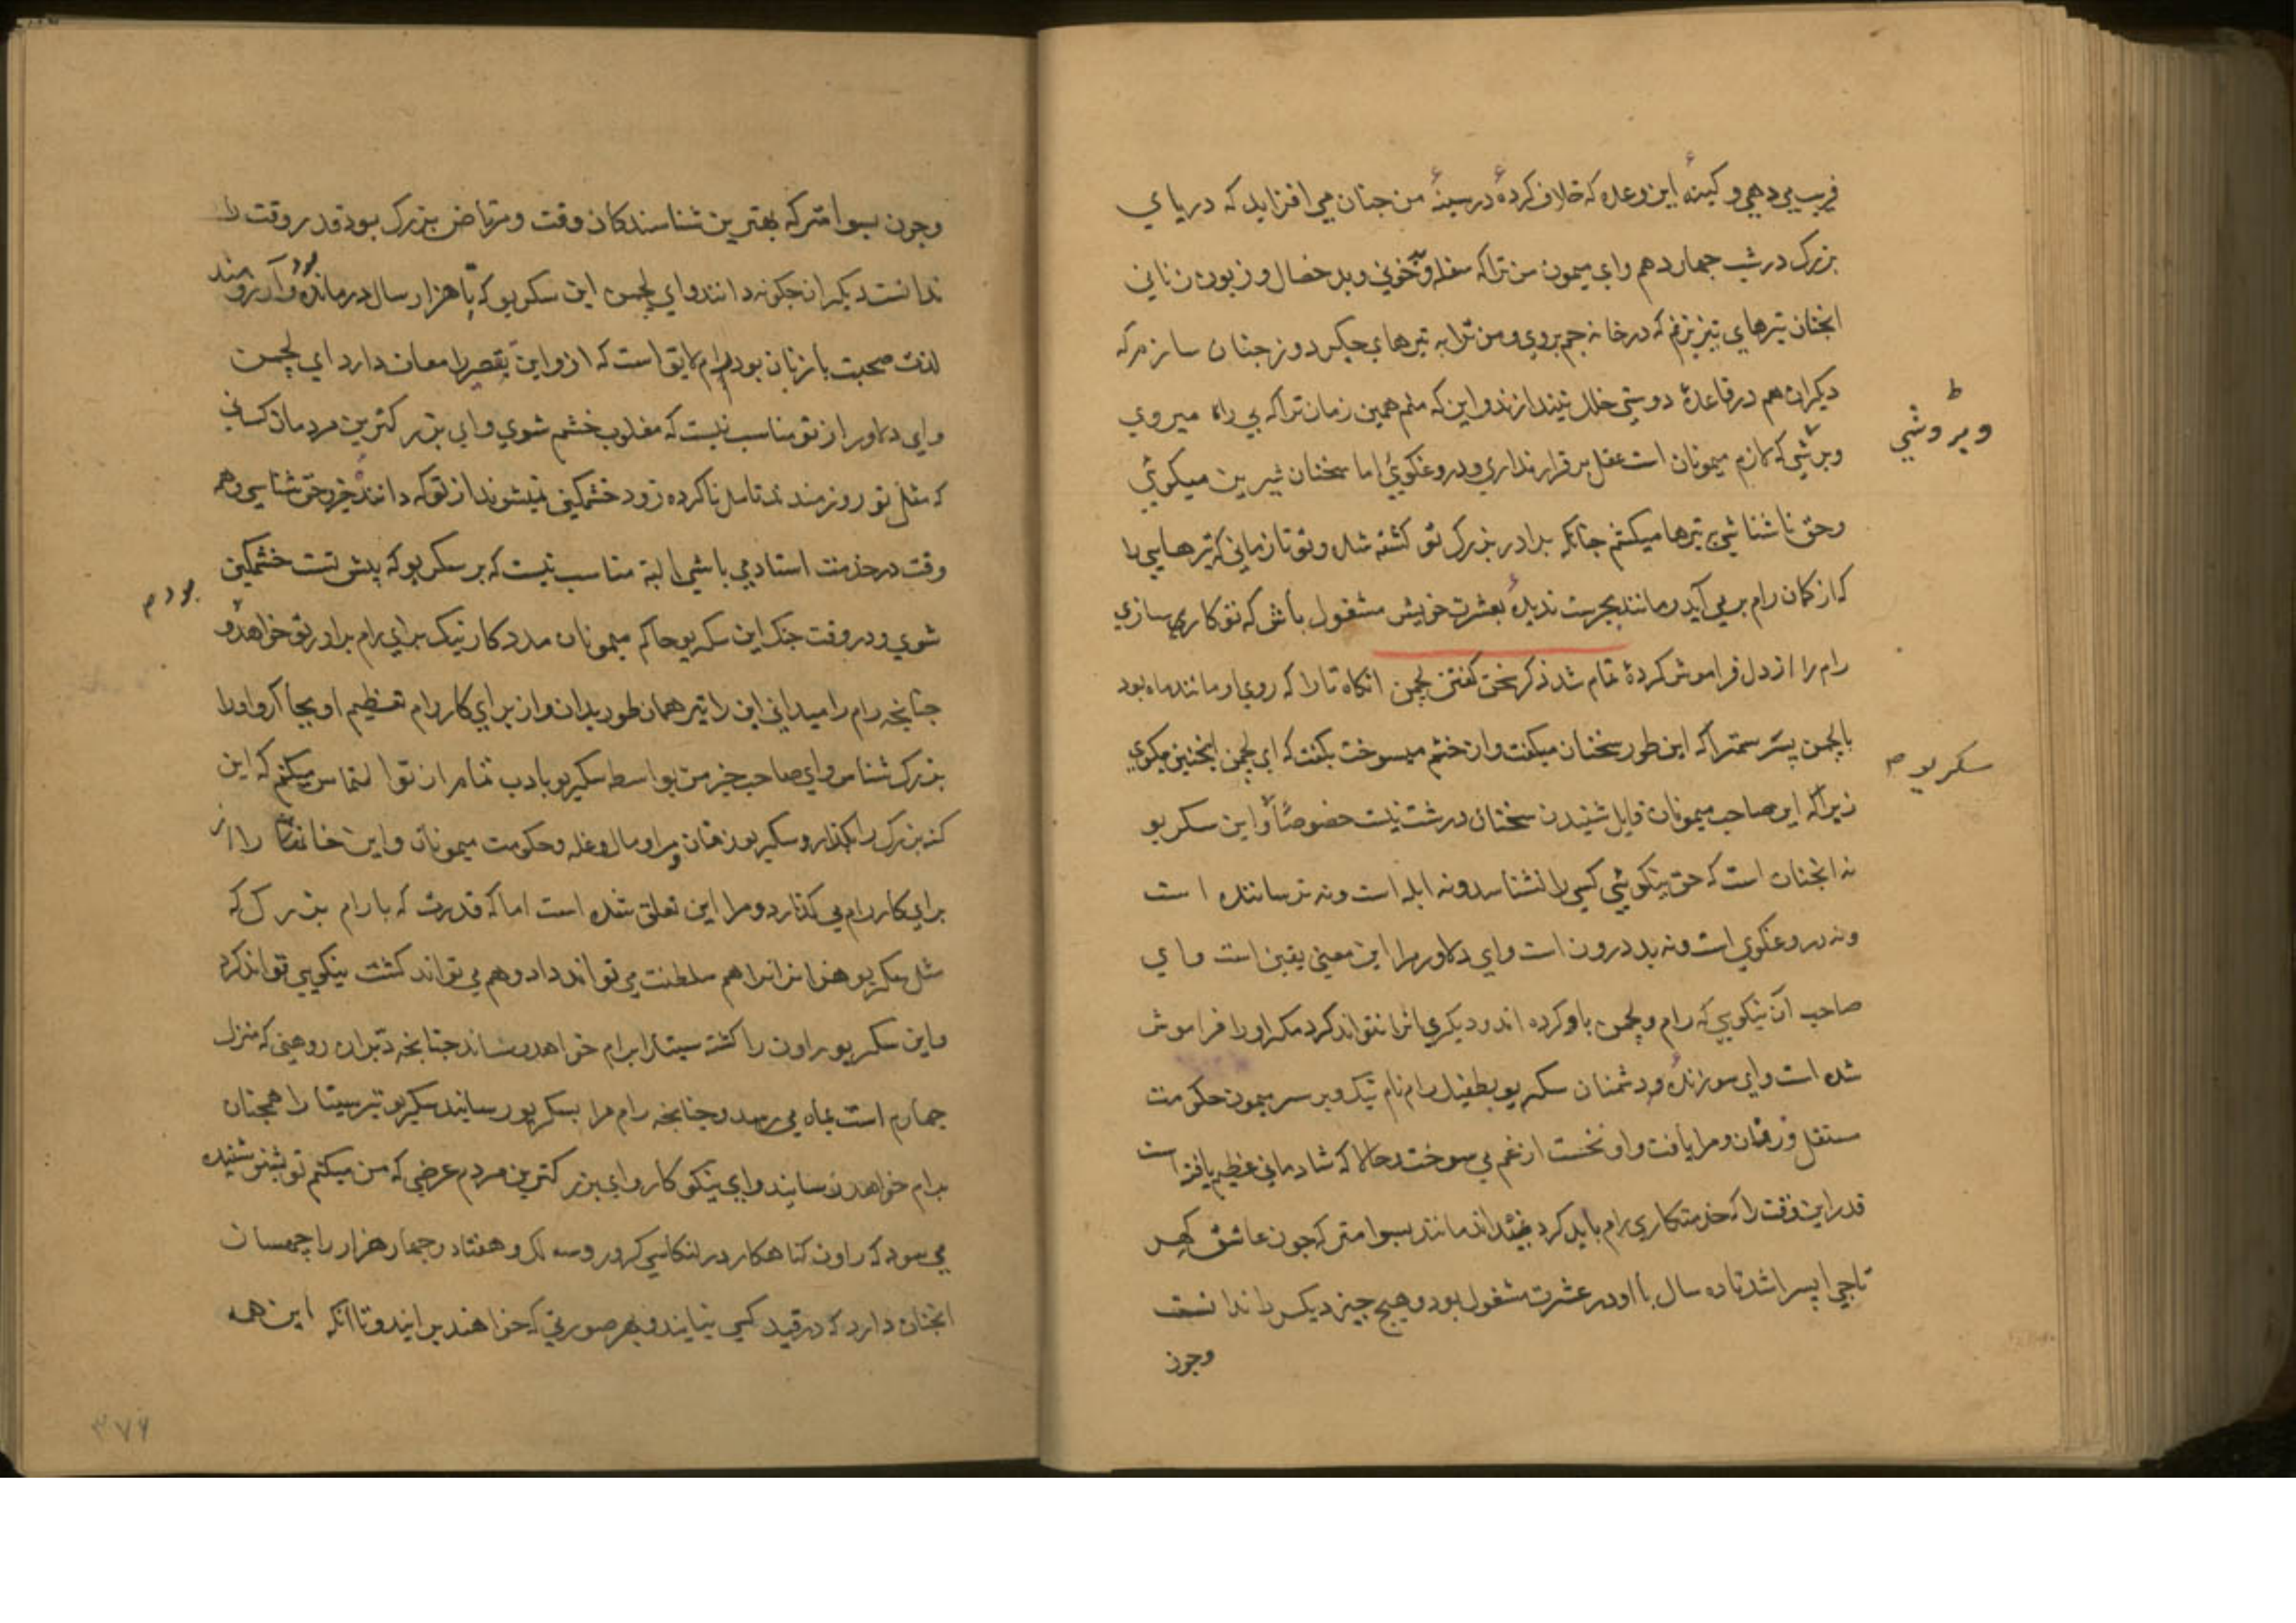 فریب می دهی و کینهٔ این وعده که خلاف کردهٔ در سینهٔ من چنان می افزاید که دریای
بزرک در شب چهاردهم وای میمون من ترا که سفله و خونی و بد خصال و زبون زنانی
انچنان تیرهای تیز بزنم که در خانه جم بروی و من ترا به تیرهای جیکر دوز چنان سازم که
دیکران هم در قاعدهٔ دوستی خلل نیندازند و این که منم همین زمان ترا که بی راه میروی
وبر شی که لازم میمونان است عقل برقرار نداری و دروغکویی اما سخنان شیرین میکویی
ویروشی
وحق ناشناشی بتیرها میکشم چنانکه برادر بزرک تو کشته شد و تو تا زمانی که تیرهایی را
که از کمان رام بر می آید و مانند بجرست ندیدهٔ بعشرت خویش مشغول باش که تو کار می سازی
رام را از دل فراموش کردهٔ تمام شد ذکر سخن کفتن لچمن انکاه تارا که روی او مانند ماه بود
با لچمن پسر سمترا که این طور سخنان میکفت و از خشم میسوخت بکفت که ای لچمن اینچنین میکوی
سکریو م
زیرا که این صاحب میمونان قابل شنیدن سخنان درشت نیست خصوصًا و این سکریو
نه انچنان است که حق نیکویی کسی را نشناسد و نه ابله است و نه ترساننده است
ونه دروغکوی است ونه بد درون است وای دلاور مرا این معنی یقین است وای
صاحب آن نیکویی که رام و لچمن باو کرده اند و دیکری انرا نتواند کرد مکر او را فراموش
شده است وای سوزندهٔ دشمنان سکریو بطفیل رام نام نیک و بر سر میمون حکومت
مستقل و رقان و مرا یافت و او نخست از غم می سوخت و حالا که شادمانی عظیم یافته است
قدر این وقت را که خدمتکاری رام باید کرد نمیداند مانند بسوامتر که چون عاشق کهر
تاچی اپسرا شد تا ده سال با او در عشرت مشغول بود و هیچ چیز دیکر را ندانست
وچون
وچون بسوامتر که بهترین شناسندکان وقت و مرتاض بزرک بود قدر وقت را
ندانست دیکران چکونه دانند وای لچمن این سکریو که تا هزار سال درمانده بود وآرزومند
لذت صحبت با زنان بود رام لایق است که ازو این تقصیر را معاف دارد ای لچمن
وای دلاور از تو مناسب نیست که مغلوب خشم شوی وای بزرکترین مردمان کسانی
که مثل تو روزمند ند تامل ناکرده زود خشمکین نمیشوند از تو که دانندهٔ خرد حق شناسی و همه
وقت در خدمت استاد می باشی البته مناسب نیست که بر سکریو که پیش تست خشمکین
بود م
شوی و در وقت جنک این سکریو حاکم میمونان مدد کار نیک برای رام برادر تو خواهد و
چنانچه رام را میدانی این را نیز همان طور بدان و از برای کار رام تعظیم او بجا آر و او را
بزرک شناس وای صاحب چیز من بواسطه سکریو بادب تمام از تو التماس میکنم که این
کنه بزرک را بکذار و سکریو زنان و مرا و مال و غله و حکومت میمونان و این خانها را از
برای کار رام می کذارد و مرا این تعلق شده است اما که قدرت که با رام بزرک که
مثل سکریو هزاران را هم سلطنت می تواند داد و هم می تواند کشت نیکویی تواند کرد
واین سکریو راون را کشته سیتا را برام خواهد رساند چنانچه دبران روهنی که منزل
چهارم است بماه می رسد و چنانچه رام مرا بسکریو رسانید سکریو نیز سیتا را همچنان
برام خواهد رسانید وای نیکوکار وای بزرکترین مردم عرضی که من میکنم تو بشنو شنیده
می سود که راون کناهکار در لنکا سی کرور و سه لک و هفتاد و چهار هزار راچهسان
انچنان دارد که در قید کسی نیایند و بهر صورتی که خواهند برایند و تا انکه این همه
۳۷۶